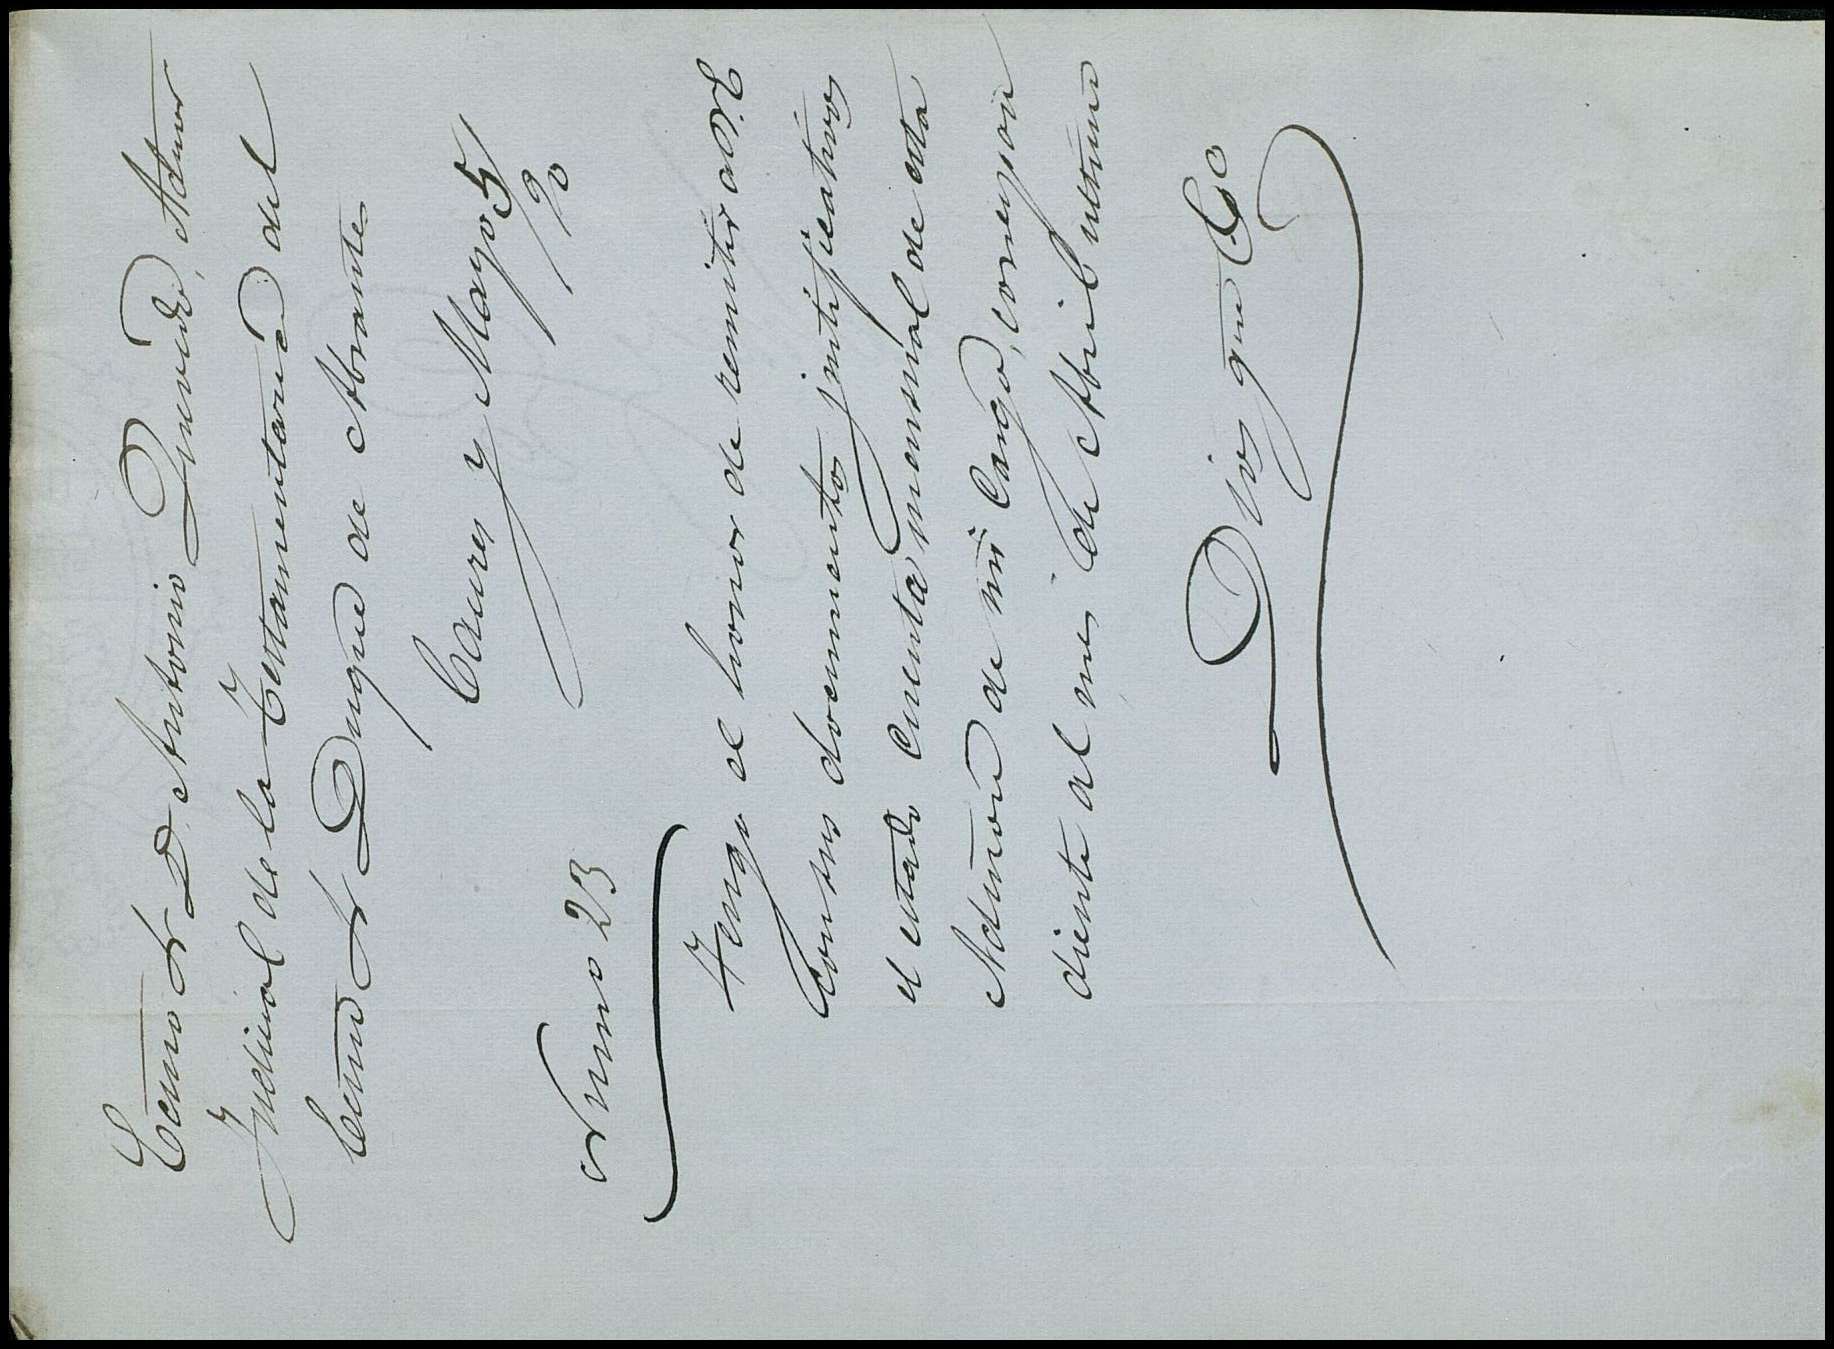 Excmo Sr D. Antonio Quevedo, Admor
Judicial de la Testamentaria del
Excmo Sr Duque de Abrantes
Caures y Mayo 5/90
Num 23
Tengo el honor de remitir a V.E
con sus documentos justificativos
el estado cuenta mensual de esta
Admon de mi cargo, correspon
diente al mes de Abril ultimo
Dios gue